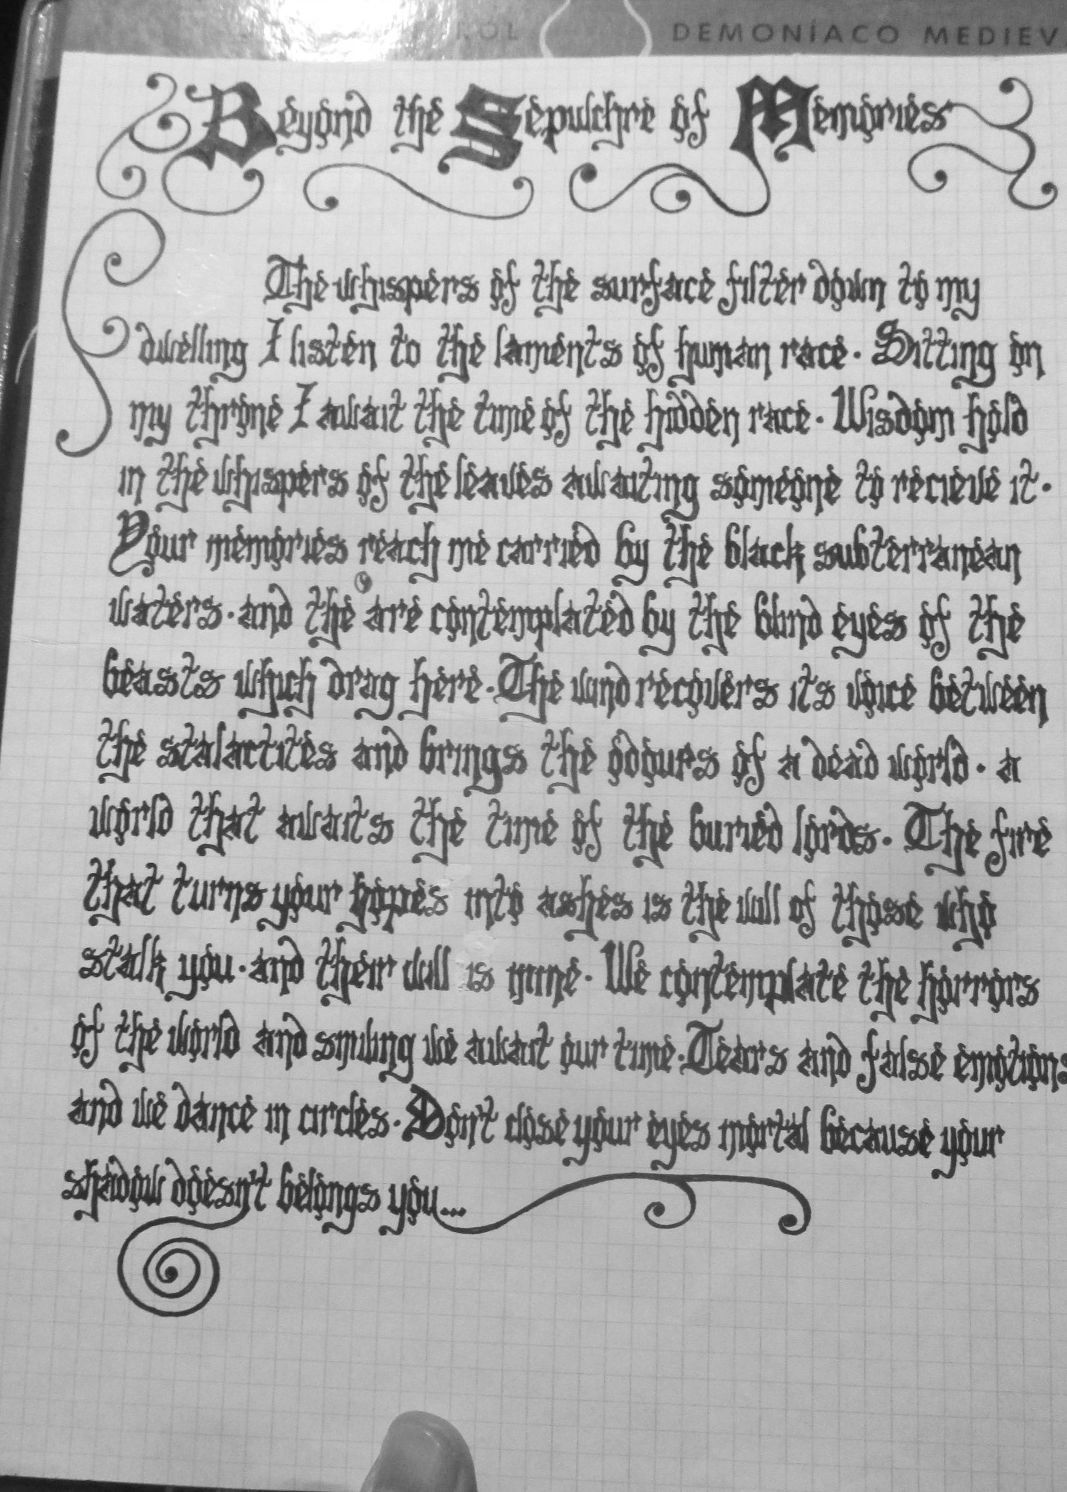 ROL DEMONÍACO MEDIEV
Beyond the Sepulchre of Memories
The whispers of the surface filter down to my
dwelling I listen to the laments of human race. Sitting on
my throne I await the time of the hidden race. Wisdom hold
in the whispers of the leaves awaiting someone to recieve it.
Your memories reach me carried by the black subterranean
waters. and the are contemplated by the blind eyes of the
beasts which drag here. The wind recovers its voice between
the stalactites and brings the odours of a dead world. a
world that awaits the time of the buried lords. The fire
that turns your hopes into ashes is the will of those who
stalk you. and their will is mine. We contemplate the horrors
of the world and smiling we await our time. Tears and false emotions
and we dance in circles. Don't close your eyes mortal because your
shadow doesn't belongs you...